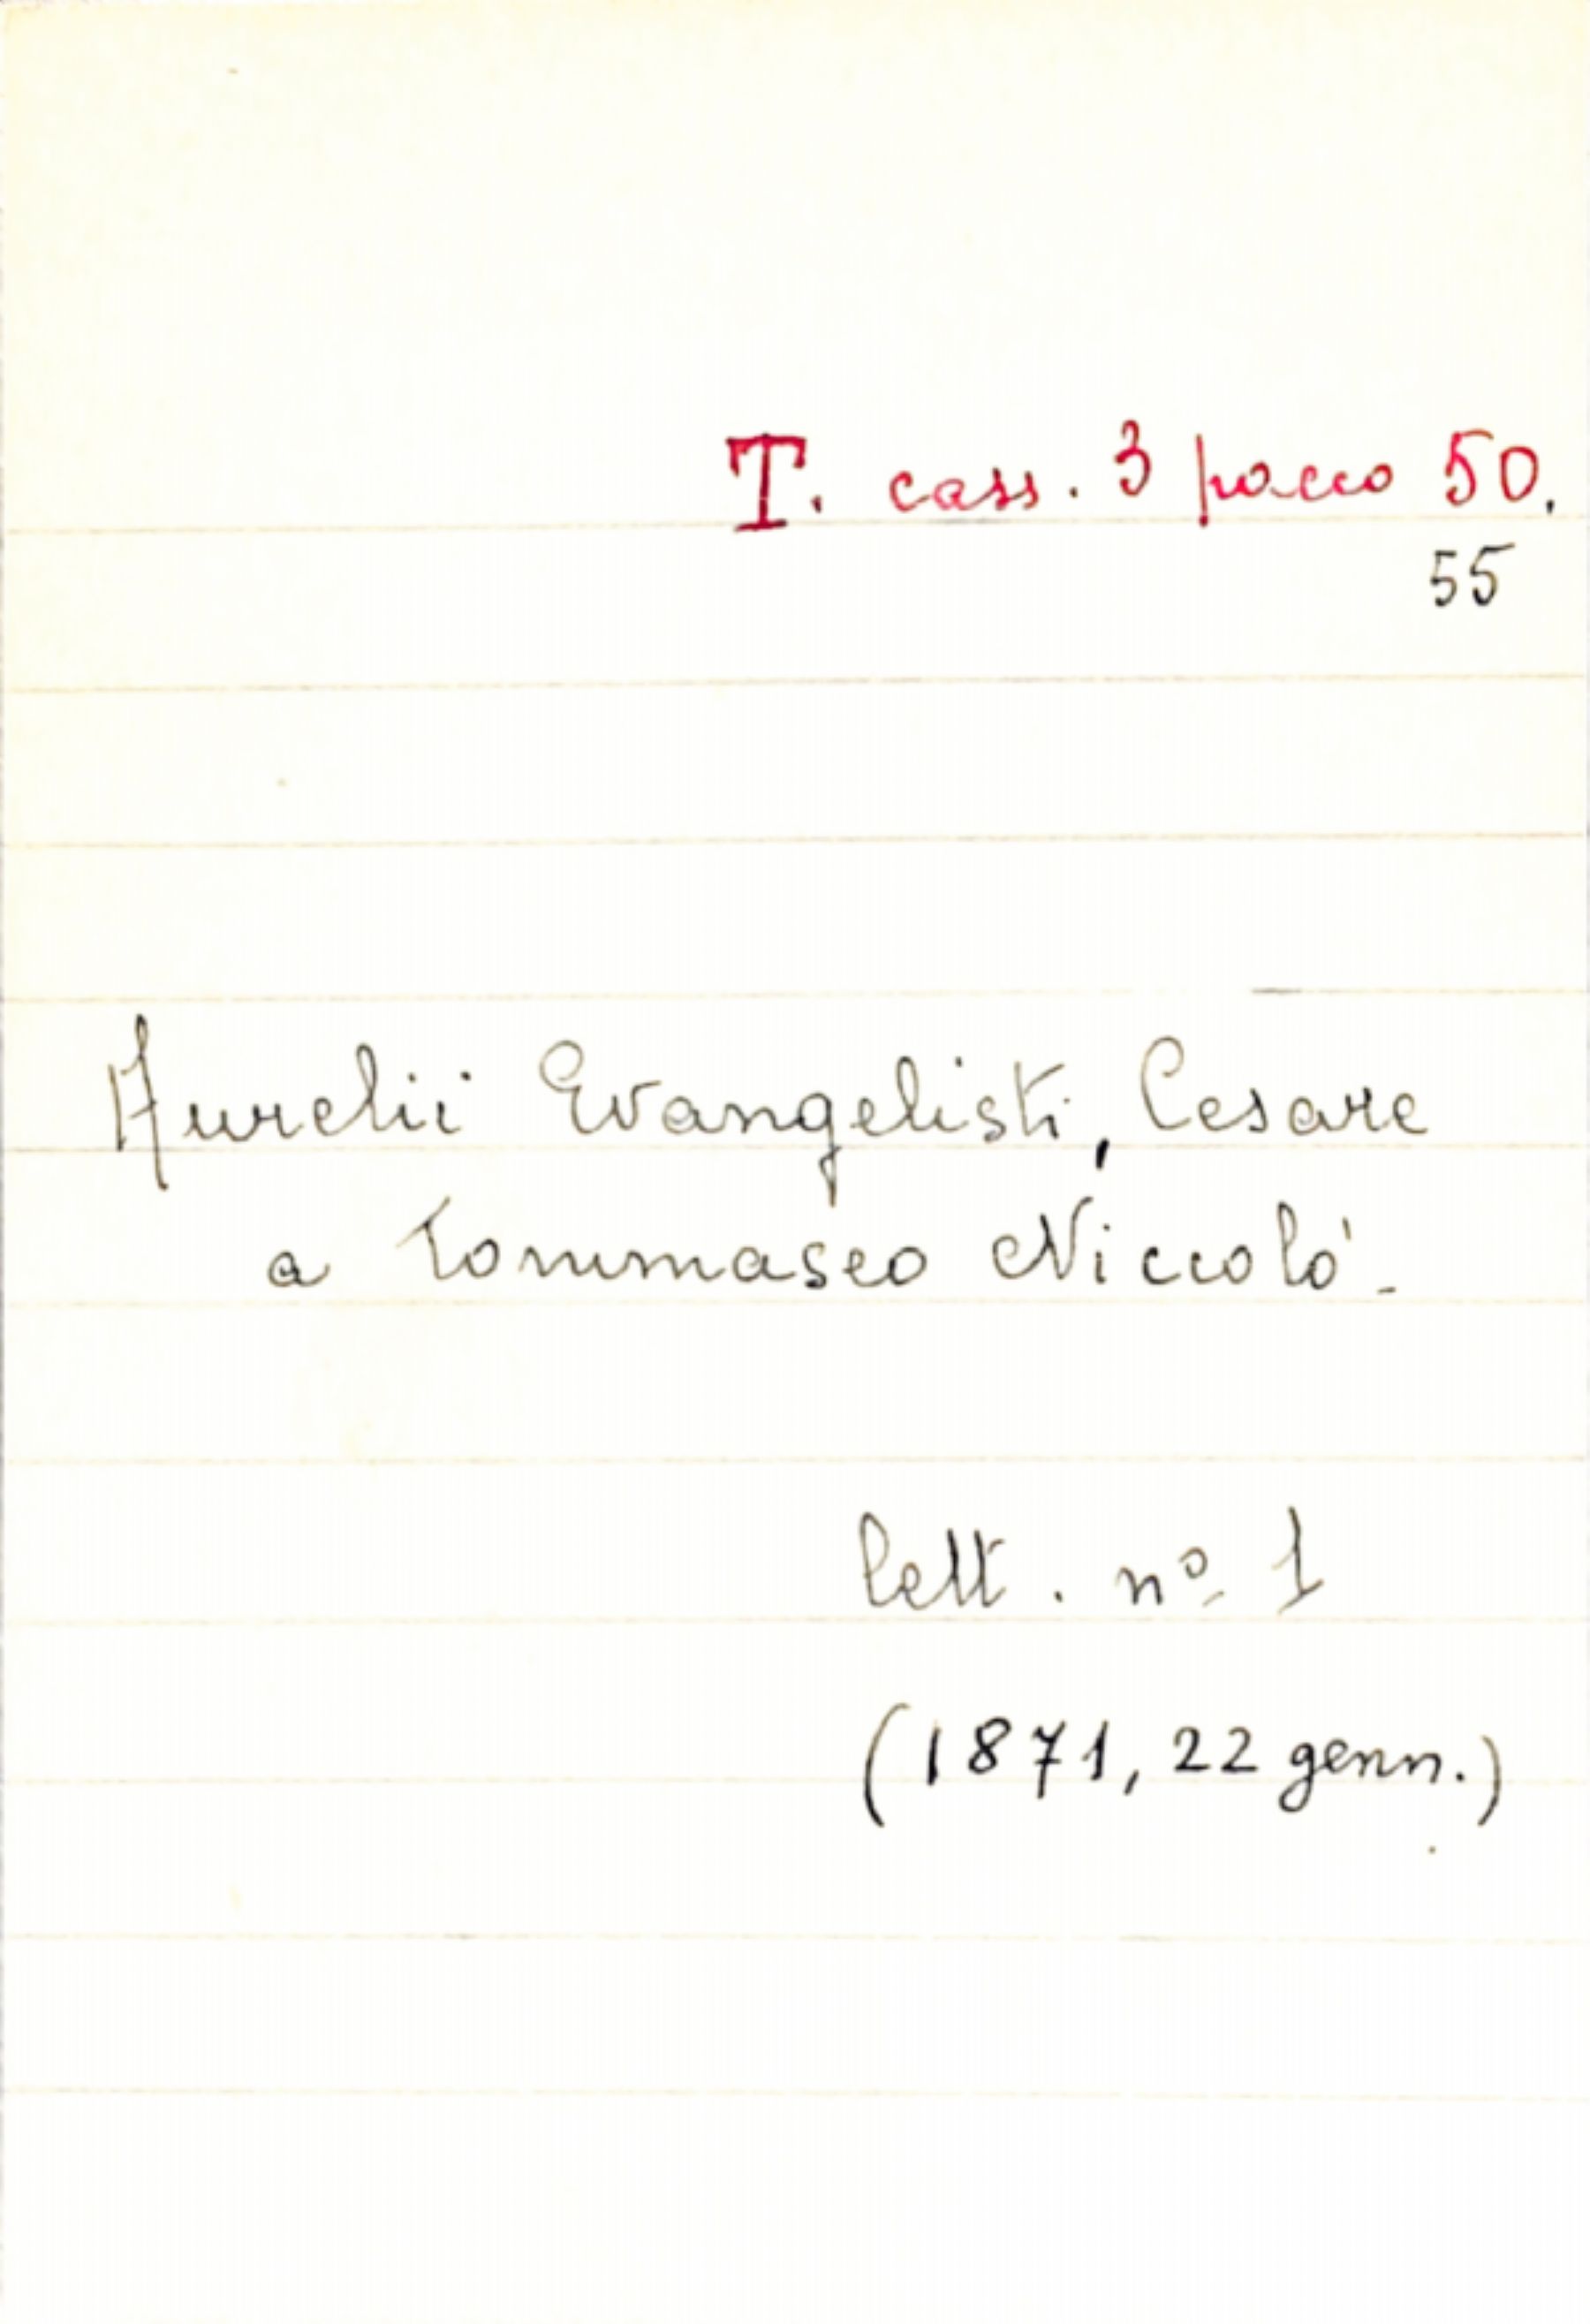 T. cass. 3 pacco 50.
55
Aurelii Evangelisti, Cesare
a Tommaseo Niccolò.
lett. nº 1
(1871, 22 genn.)